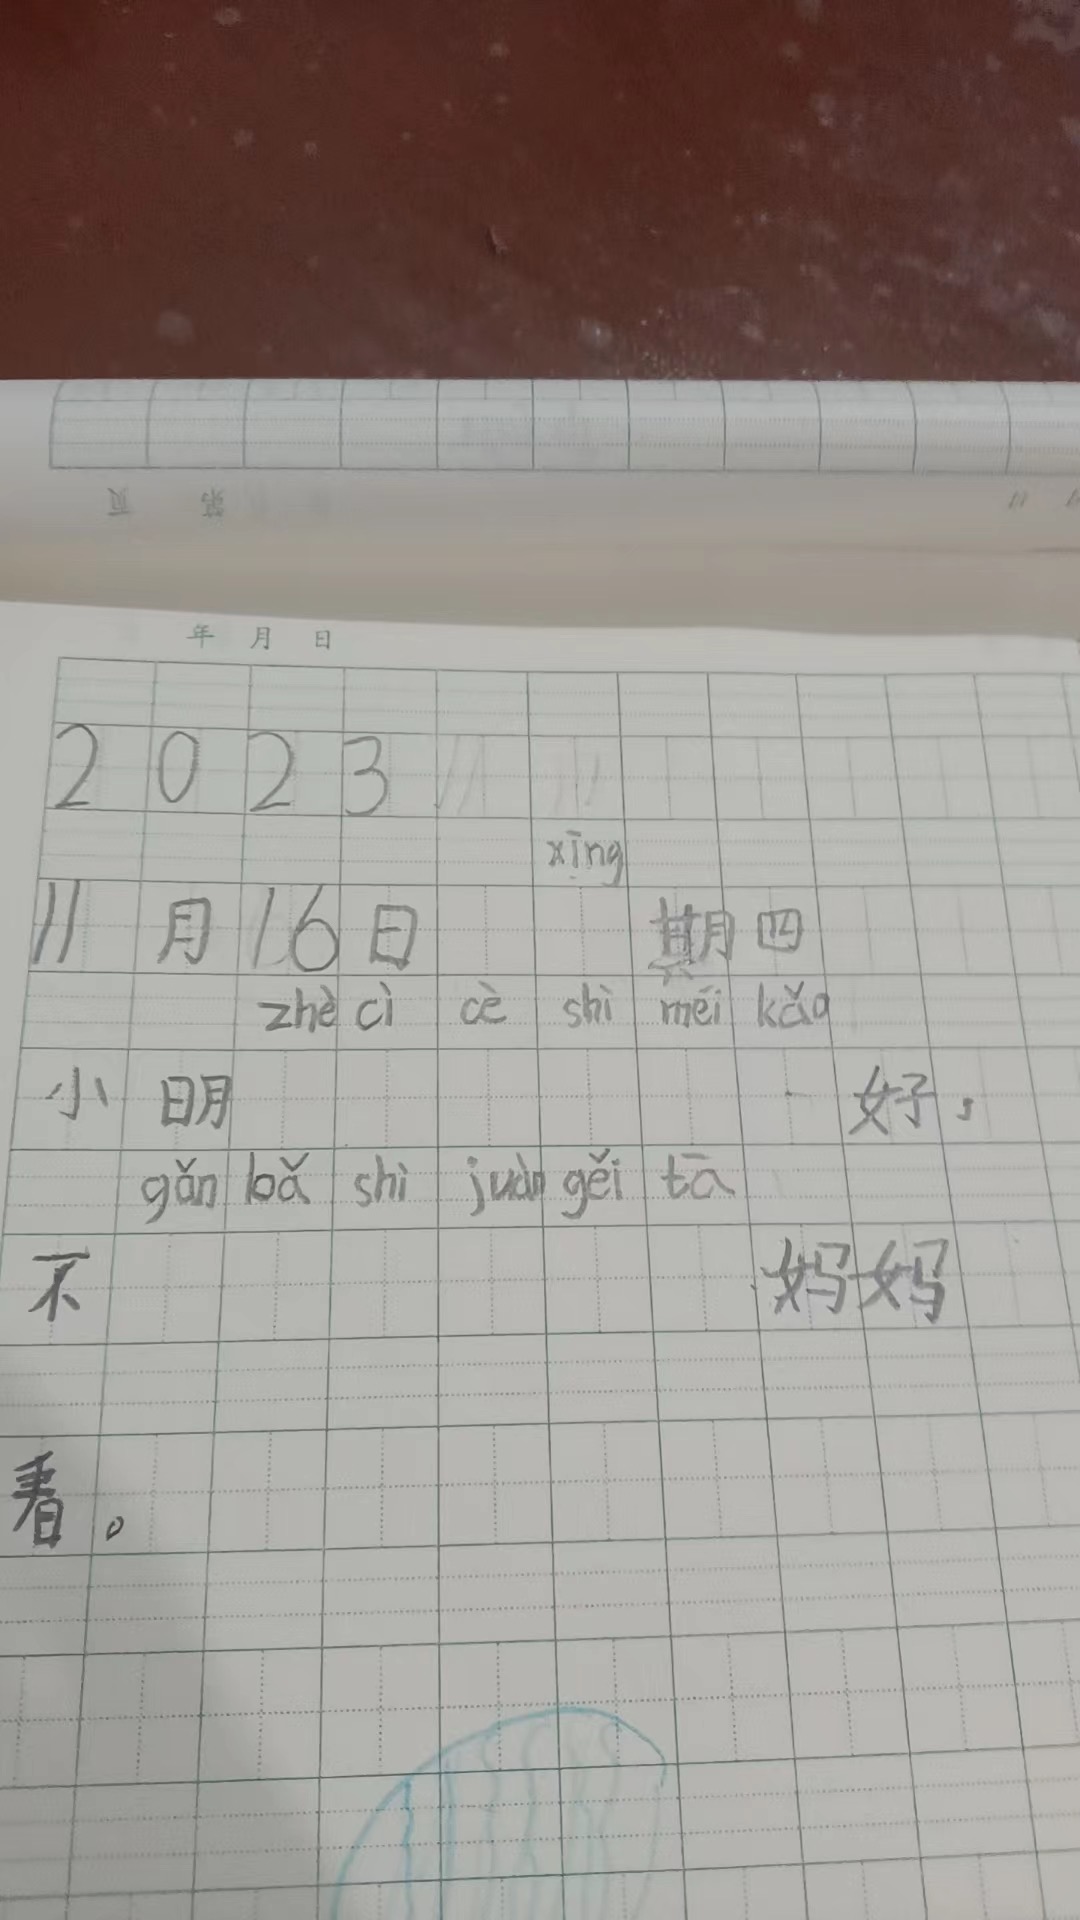 年 月 日
2023
xīng
11月16日 期四
zhè cì cè shì méi kǎo
小明 好，
gǎn bǎ shì juàn gěi tā
不 妈妈
看。